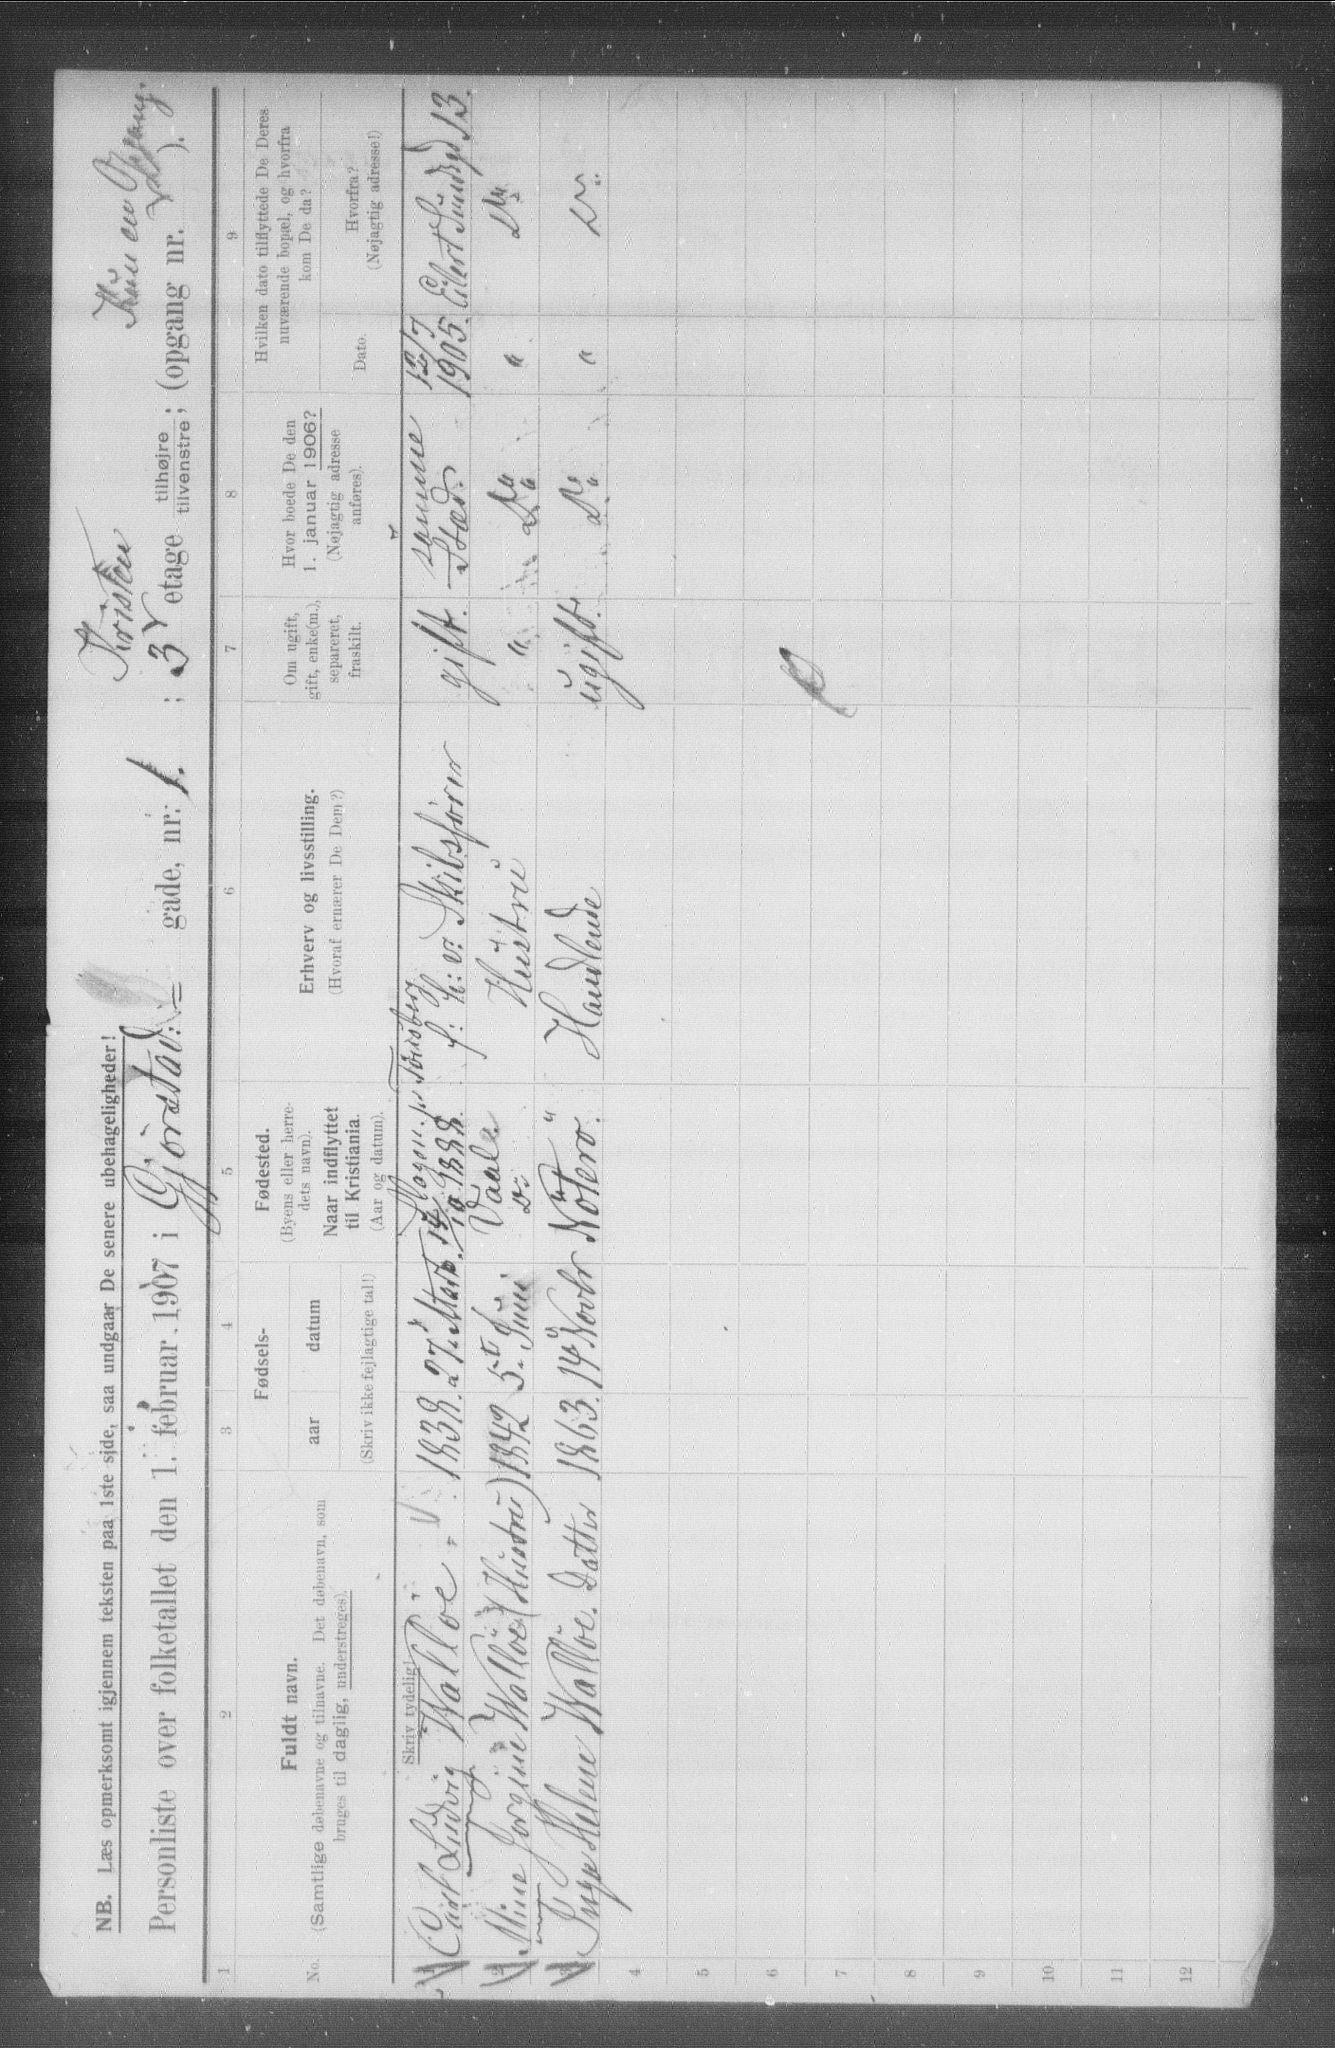 NB. Læs opmerksomt igjennem teksten paa 1ste side, saa undgaar De senere ubehageligheder!
Kristen
Kun en Opgang.
Personliste over folketallet den 1. februar 1907 i Gjørstad: gade, nr: 1. ; 3 etage tilhøjre tilvenstre; (opgang nr. ).
1 2 3 4 5 6 7 8 9
No.
Fuldt navn.
(Samtlige døbenavne og tilnavne. Det døbenavn, som
bruges til daglig, understreges).
Fødsels-
aar datum
(Skriv ikke fejlagtige tal!)
Fødested.
(Byens eller herre-
dets navn).
Naar indflyttet
til Kristiania.
(Aar og datum).
Erhverv og livsstilling.
(Hvoraf ernærer De Dem?)
Om ugift,
gift, enke(m.),
separeret,
fraskilt.
Hvor boede De den
1. januar 1906?
(Nøjagtig adresse
anføres).
Hvilken dato tilflyttede De Deres
nuværende bopæl, og hvorfra
kom De da?
Dato.
Hvorfra?
(Nøjagtig adresse!)
Skriv tydelig!
1 Carl Ludvig Walløe. 1838. 27 Marts. Slagen pr Tønsberg 14/10 1888. f: h: v: Skibsfører gift. samme Sted. 12/7 1905. Eilert Sundsgd 13.
2 Mine Jørgine Walløe (Hustru) 1842 5t Juni Vaale Do Hustru " Do " Do
3 Inga Helene Walløe. Datter 1863. 14 Novbr Nøterø. " Handlende ugift. Do " Do
4
5
6
7
8
9
10
11
12